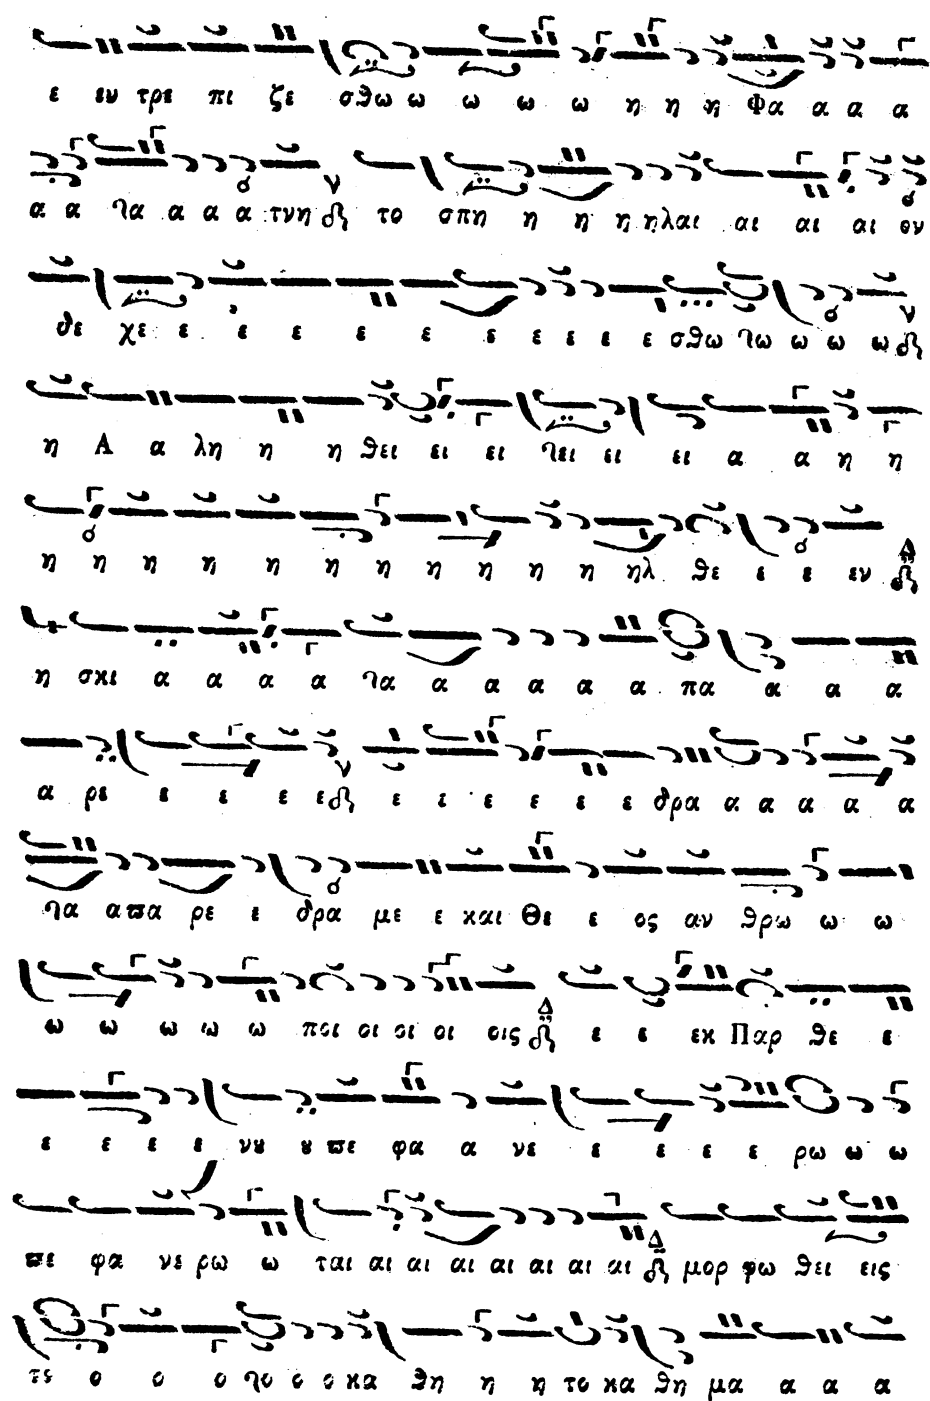 ε εν τρε πι ζε σθω ω ω ω ω η η η Φα α α α
α α γα α α α τνη το σπη η η η ηλαι αι αι αι ον
δε χε ε ε ε ε ε ε ε ε ε ε σθω γω ω ω ω
η Α α λη η η θει ει ει γει ει ει α α η η
η η η η η η η η η η η ηλ θε ε ε εν
η σκι α α α α γα α α α α α πα α α α
α ρε ε ε ε ε ε ε ε ε ε ε δρα α α α α α
γα α πα ρε ε δρα με ε και Θε ε ος αν θρω ω ω
ω ω ω ω ω ποι οι οι οι οις ε ε εκ Παρ θε ε
ε ε ε ε νȣ ȣ πε φα α νε ε ε ε ε ρω ω ω
πε φα νε ρω ω ται αι αι αι αι αι αι αι μορ φω θει εις
τε ο ο ο γο ο ο κα θη η η το κα θη μα α α α